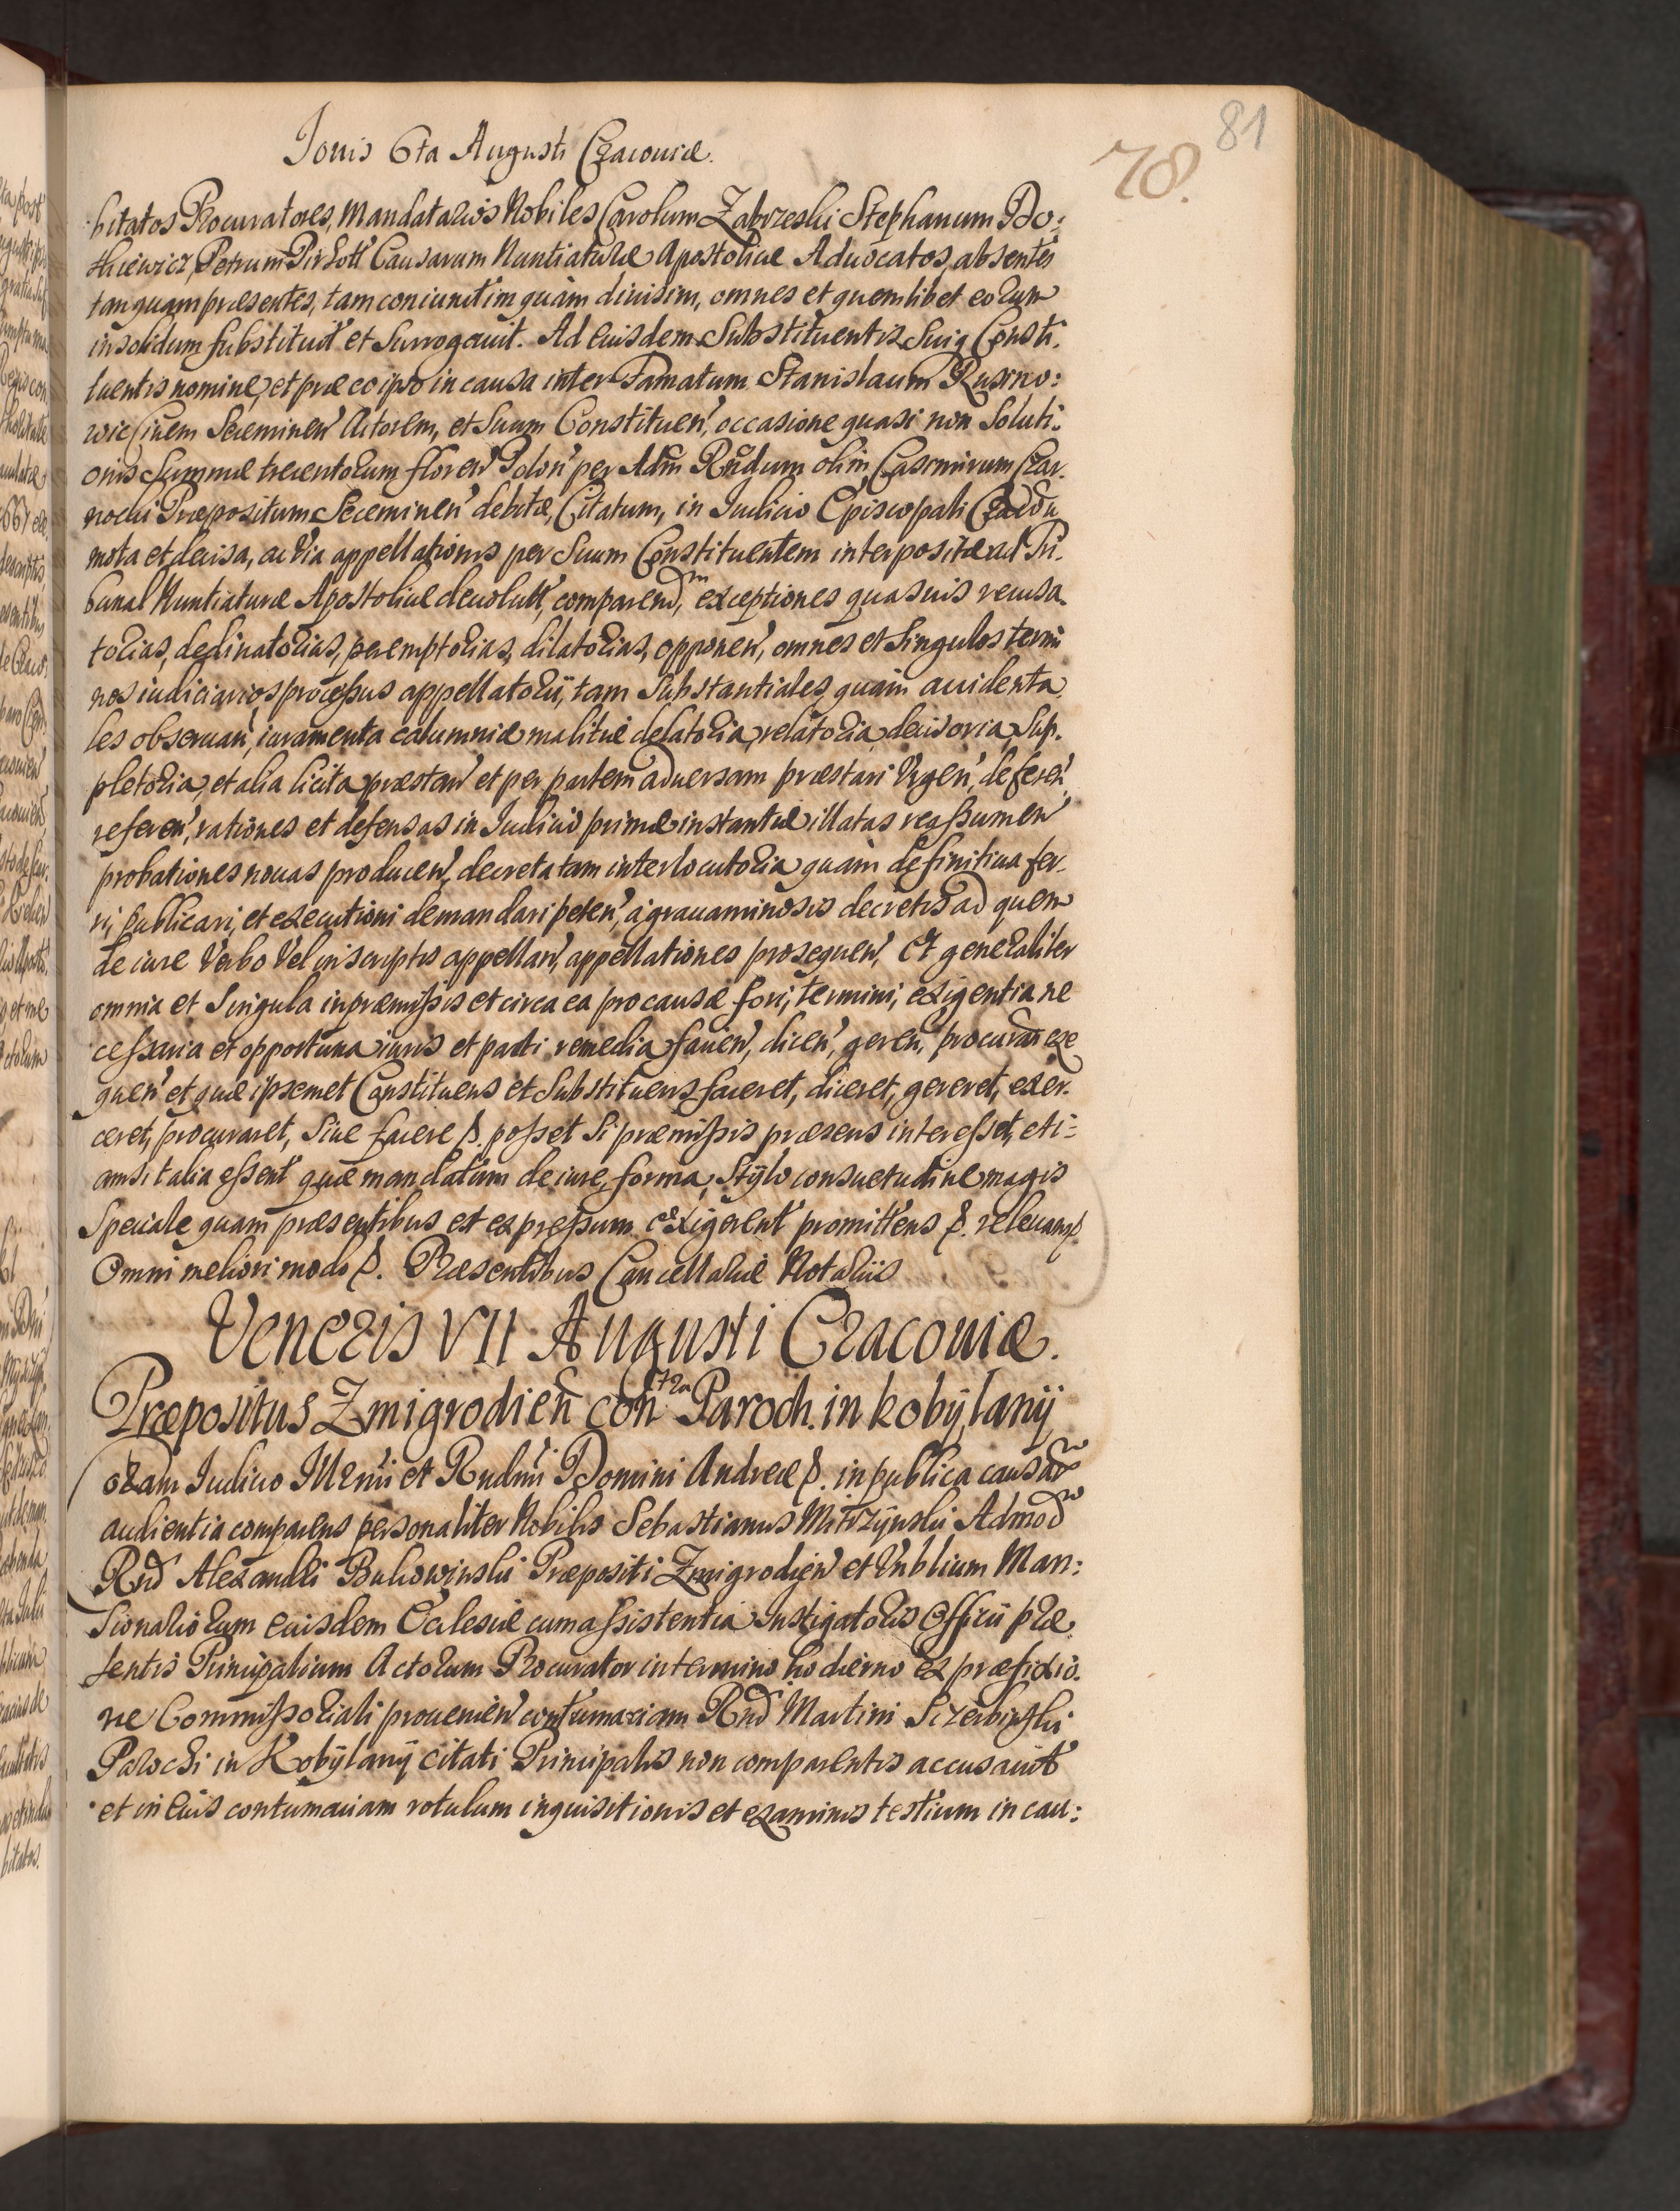 Jouis 6ta Augusti Cracouiæ.
81
78.
bitatos Procuratores, Mandatarios Nobiles Carolum Zabrzeski Stephanum Do:
thiewicz, Petrum Pirsott Causarum Nuntiaturæ Apostolicæ Aduocatos, absentes
tanquam præsentes, tam coniunctim quàm diuisim, omnes et quemlibet eorum
insolidum substituit et surrogauit. Ad euisdem Substituentis Suiq Consti.
tuentis nomine, et præ eo ipso in causa inter Famatum Stanislaum Rusino:
wic Ciuem Seceminen' Actorem, et Suum Constituen', occasione quasi non Soluti:
onis Summæ trecentorum floren' Polon' per Adm Rndum olim Casimirum Czar.
nocki Præpositum Seceminen' debitæ, Citatum, in Iudicio Episcopali
mota et decisa, ac via appellationis per Suum Constituentem interpositæ ad Tri.
bunal Nuntiaturæ Apostolicæ deuolutt, comparend, exceptiones quasuis recusa.
torias, declinatorias, peremptorias, dilatorias, opponen', omnes et Singulos termi
nos iudiciarios processus appellatorij, tam Substantiales, quàm accidenta.
les obseruan', iuramenta calumniæ malitiæ delatoria, relatoria, decisoria, Sup.
pletoria, et alia licita præstan' et per partem aduersam præstari Vrgen', deferen',
referen', rationes et defensas in Iudicio primæ instantiæ illatas reassumen'
probationes nouas producen', decreta tam interlocutoria quàm definitiua fer.
ri, publicari, et executioni demandari peten', à grauaminosis decretis ad quem
de iure Verbo Vel in scriptis appellan', appellationes prosequen', Et generaliter
omnia et Singula in præmissis et circa ea pro causæ fori, termini, exigentia ne
cessaria et opportuna iuris et parti remedia facien', dicen', geren', procuran exe
quen' et quæ ipsemet Constituens et Substituens faceret, diceret, gereret, exer.
ceret, procuraret, Siue facere &. posset Si præmissis præsens interesset, eti:
amsi talia essent quæ mandatum de iure, forma, Stylo consuetudine magis
Speciale quam præsentibus et expressum exigerent promittens &. releuans &.
Omni meliori modo &. Præsentibus Cancellariæ Notariis
Veneris VII Augusti Cracouiæ.
Præpositus Zmigrodien con tra Paroch. in kobylany
Coram Iudicio Illrmi et Rndmi Domini Andreæ &. in publica causar
audientia comparens personaliter Nobilis Sebastianus Mirzynski Admod
Rnd Alexandri Bukowinski Præpositi Zmigrodien' et Vnblium Man:
Sionariorum euisdem Ecclesiæ cum assistentia Instigatoris Officii præ
sentis Principalium Actorum Procurator in termino hodierno ex præfixio
ne Commissoriali prouenien' contumaciam Rnd Martini Szerbinski
Parochi in Kobylany citati Principalis non comparentis accusauit
et in euis contumaciam rotulum inquisitionis et examinis testium in cau: